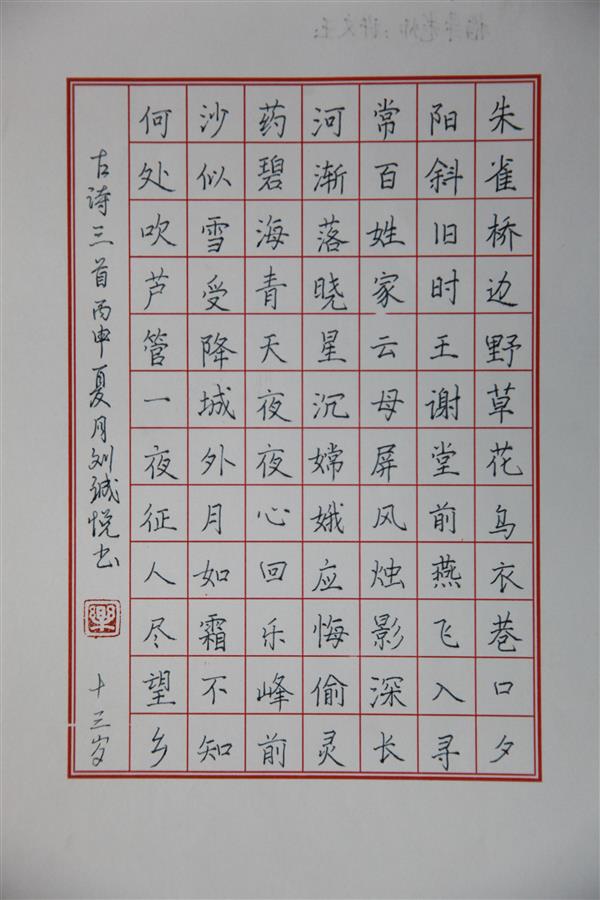 朱雀桥边野草花乌衣巷口夕
阳斜旧时王谢堂前燕飞入寻
常百姓家云母屏风烛影深长
河渐落晓星沉嫦娥应悔偷灵
药碧海青天夜夜心回乐峰前
沙似雪受降城外月如霜不知
何处吹芦管一夜征人尽望乡
古诗三首丙申夏月刘诚悦书
十三岁